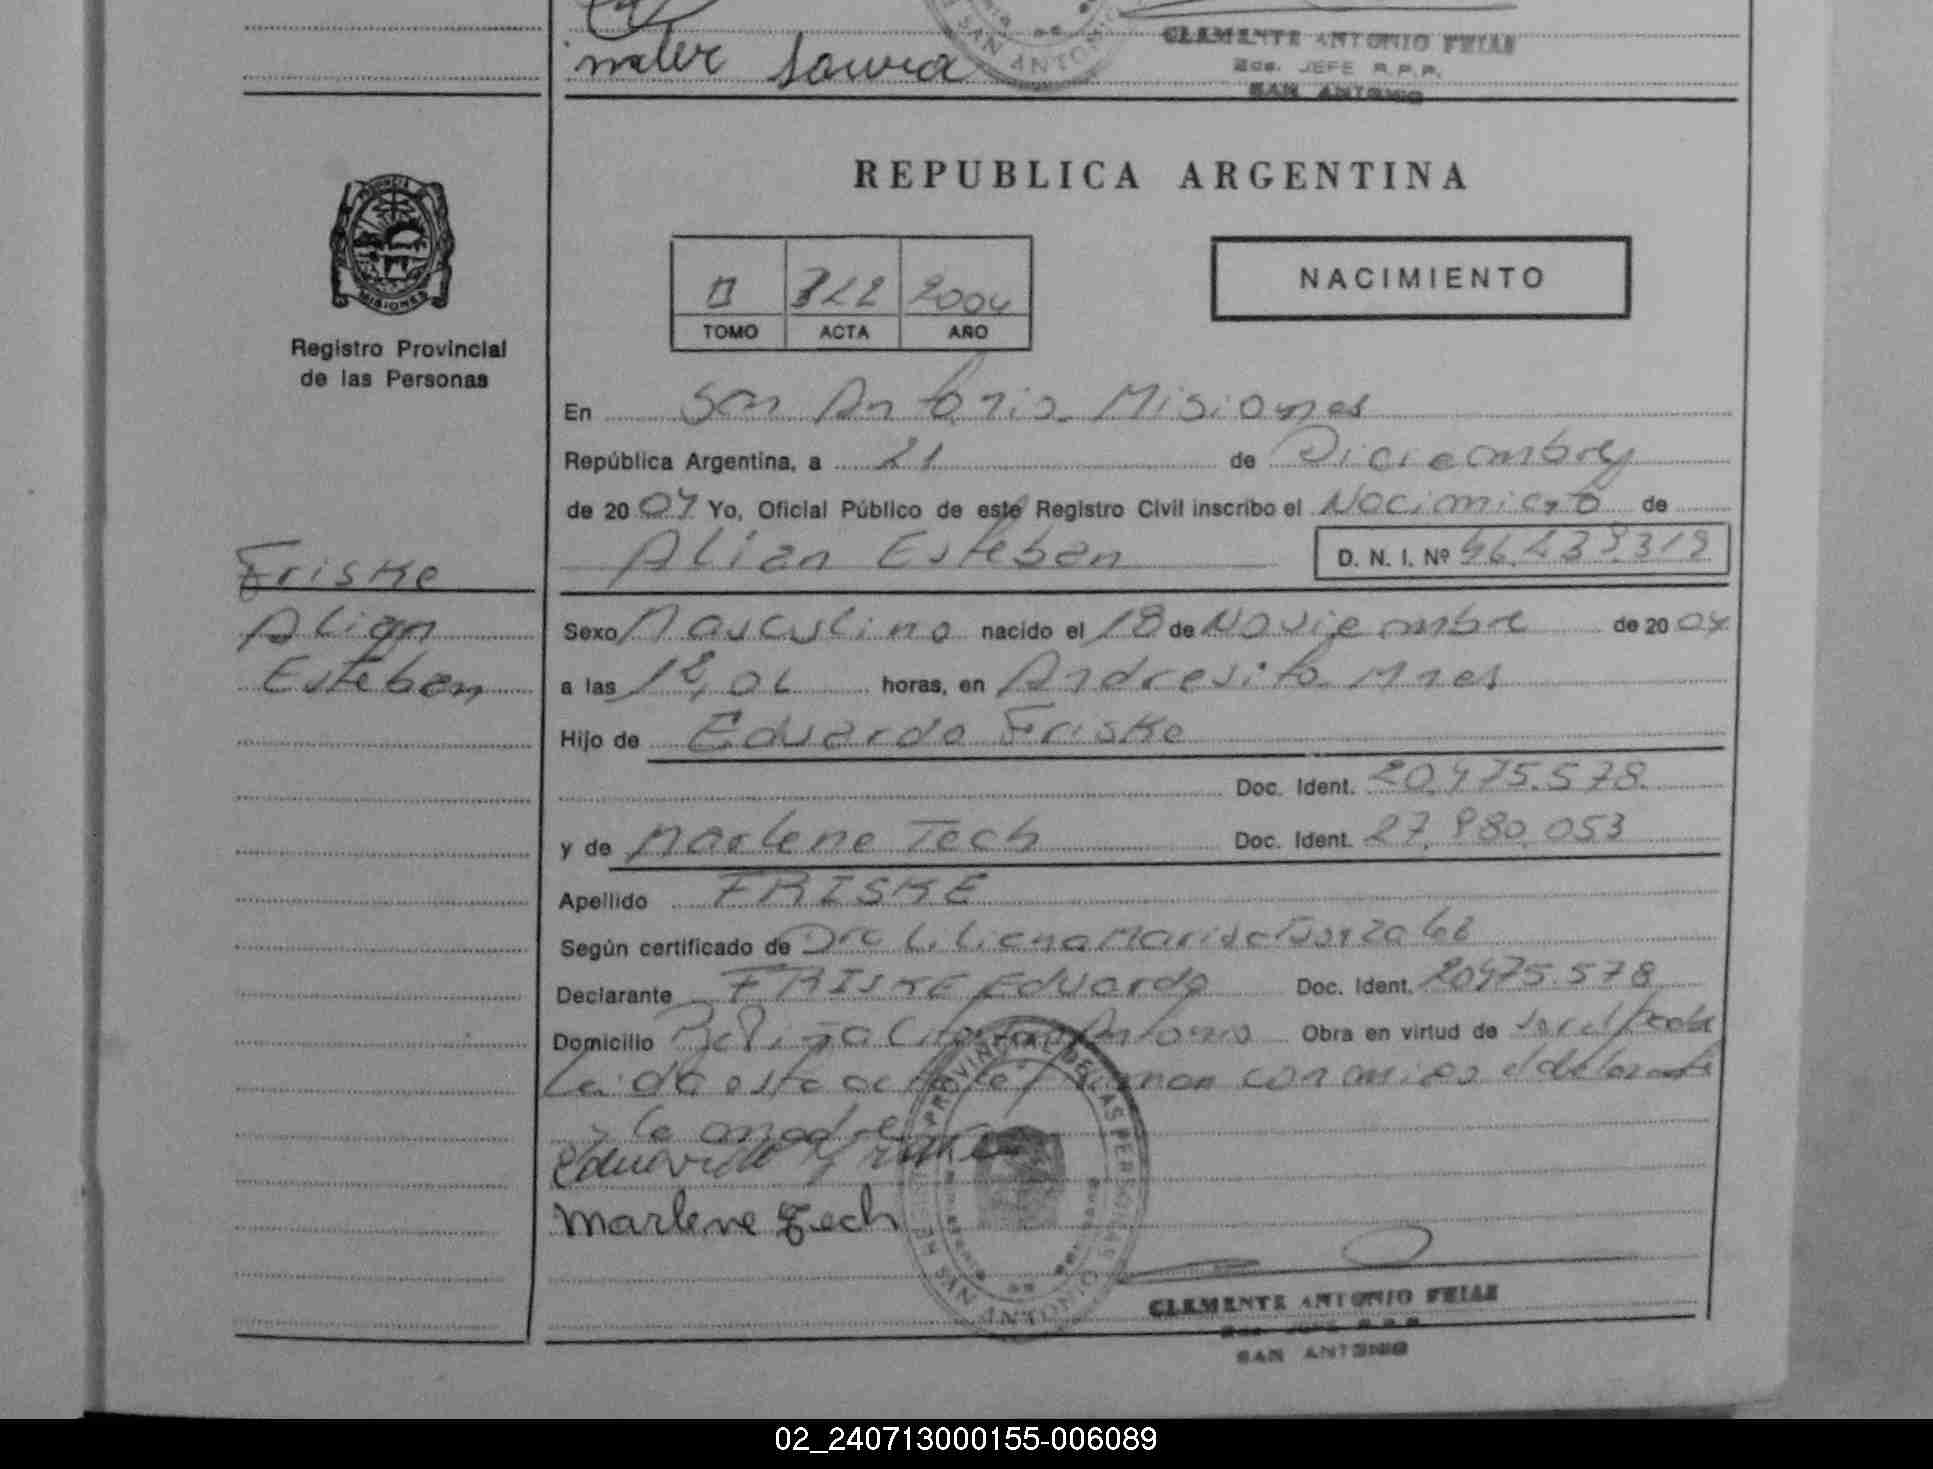 maler Souza
CLEMENTE ANTONIO FRIAS
JEFE R.P.P.
SAN ANTONIO
SAN ANTONIO
PROVINCIA
MISIONES
Registro Provincial
de las Personas
REPUBLICA ARGENTINA
II 322 2004
TOMO ACTA AÑO
NACIMIENTO
En San Antonio Misiones
República Argentina, a 21 de Diciembre
de 20 04 Yo, Oficial Público de este Registro Civil inscribo el Nacimiento de
Alian Esteban D. N. I. Nº 46.239.319
Friske
Alian
Esteban
Sexo Masculino nacido el 18 de Noviembre de 20 04
a las horas, en Andresito Mnes
Hijo de Eduardo Friske
Doc. Ident. 20.475.578
y de Marlene Tech Doc. Ident. 27.980.053
Apellido FRISKE
Según certificado de Dra Liliana
Declarante FRISKE Eduardo Doc. Ident. 20475.578
Domicilio Antonio Obra en virtud de
Leida este acta firman conmigo el declarante
y la madre
Eduardo Friske
Marlene Tech
PROVINCIAL DE LAS PERSONAS
SAN ANTONIO
CLEMENTE ANTONIO FRIAS
JEFE R.P.P.
SAN ANTONIO
02_240713000155-006089